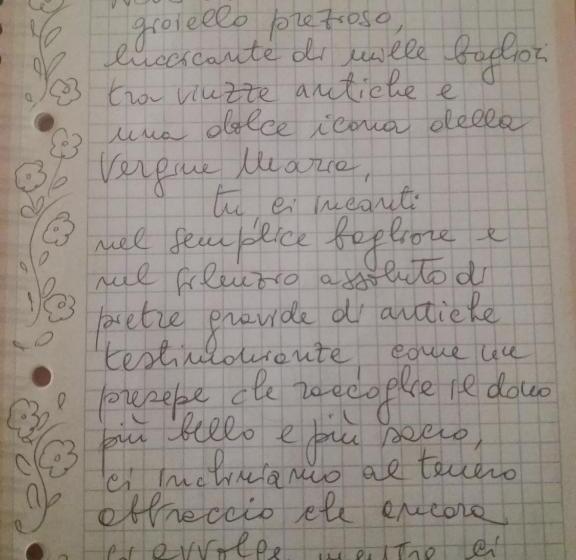 gioiello prezioso,
luccicante di mille bagliori
tra viuzze antiche e
una dolce icona della
Vergine Maria,
tu ci incanti
nel semplice bagliore e
nel silenzio assoluto di
pietre gravide di antiche
testimonianze, come un
presepe che raccoglie il dono
più bello e più sacro,
ci inchiniamo al tenero
abbraccio che ancora
ci avvolge, mentre ci